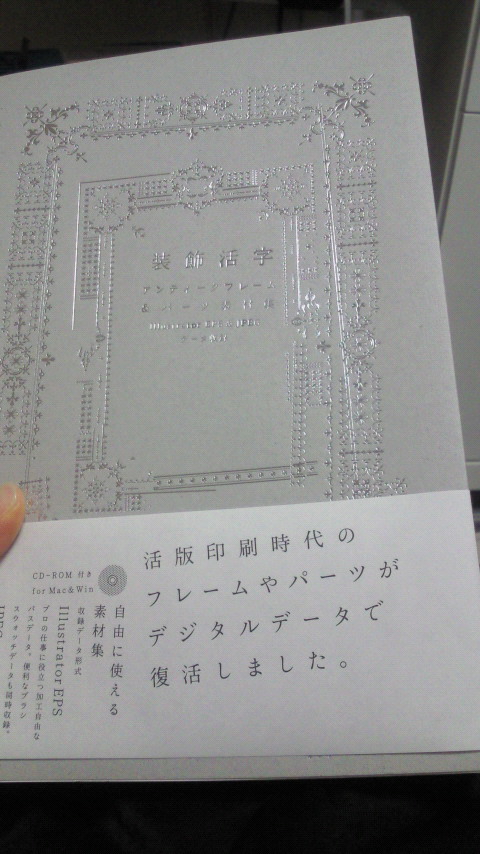 装飾活字
アンティークフレーム
& パーツ素材集
Illustrator EPS & JPEG
データ収録
活版印刷時代の
フレームやパーツが
デジタルデータで
復活しました。
CD-ROM 付き
for Mac & Win
自由に使える
素材集
収録データ形式
Illustrator EPS
プロの仕事に役立つ加工自由な
パスデータ。便利なブラシ
スウォッチデータも同時収録。
JPEG